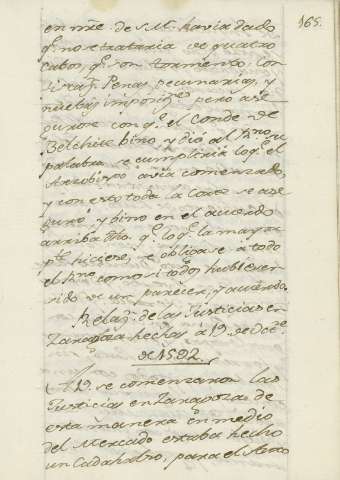 165.
en nre. de S.M. havia dado
q.e no se trataria de quatro
cabos, q.e son tormento, con
fiscaz.n Penas pecuniarias, y
nuebas imposiz.s pero a se
gurose con q.e el Conde de
Belchite bino, y dió al R.no su
palabra se cumpliria lo q.e el
Arzobispo avia comenzado,
y con esto toda la Corte se ase
guró, y bino en el acuerdo
arriba dho. q.e lo q.e la mayor
p.te hiciere, se obligase a todo
el R.no como si todos hubiesen
sido de un parecer, y acuerdo.
Relaz.n de las Justicias en
Zaragoza hechas a 19. de Oct.e
de 1592.
A 19. se comenzaron las
Justicias en Zaragoza de
esta manera q.e en medio
del Mercado estaba hecho
un Cadahalso, para el